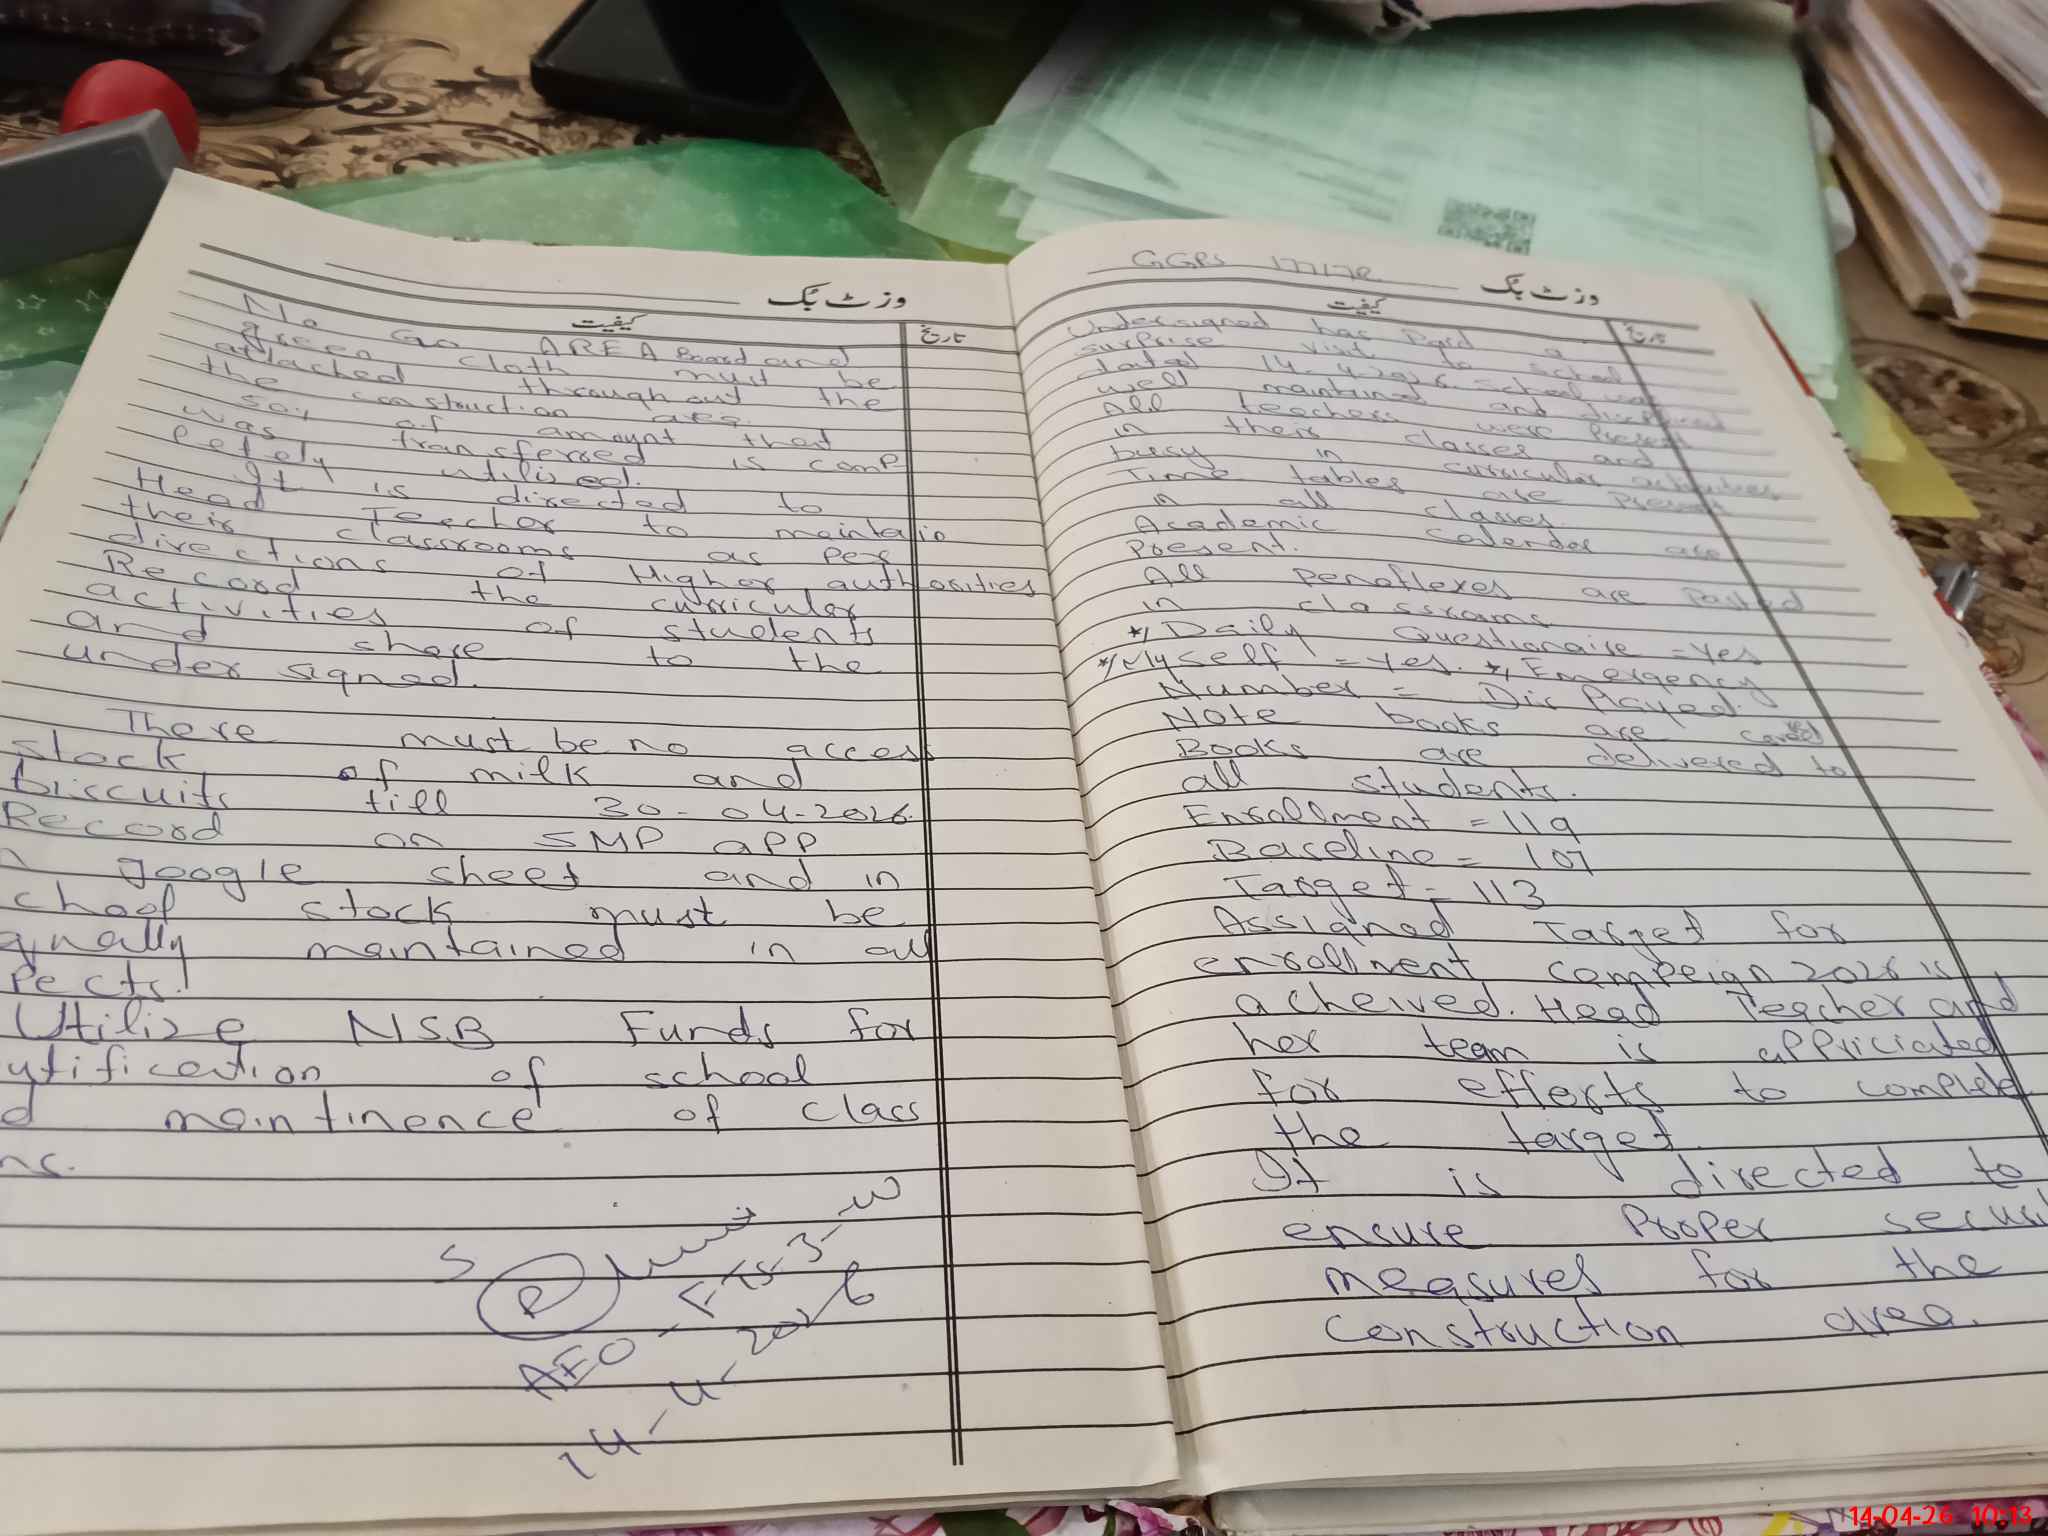 وزٹ بک
کیفیت
تاریخ
No Go AREA Board and
green cloth must be
attached throughout the
the construction area.
50% of amount that
was transferred is comp
letely utilized.
It is directed to
Head Teecher to maintain
their classrooms as per
directions of Higher authorities
Record the curricular
activities of students
and share to the
undersigned.
There must be no access
stock of milk and
biscuits till 30-04-2026.
Record on SMP app
google sheet and in
chool stock must be
qually maintained in all
pects.
Utilize NSB Funds for
utification of school
d maintinence of class
ms.
AEO-
14-4-2026
GGPS
وزٹ بک
کیفیت
تاریخ
Undersigned has paid a
surprise visit to school
dated 14-4-2026. School was
well maintined and
All teachers were present
in their classes and
busy in curricular activities
Time tables are present
in all classes.
Academic calender are
Present.
All penaflexes are pasted
in classrooms
*/ Daily Questionaire = Yes
*/ Myself = Yes. */ Emergency
Number = Displayed.
Note books are
Books are delivered to
all students.
Enrollment = 119
Baseline = 107
Target = 113
Assigned Target for
enrollment campeign 2026 is
acheived. Head Teacher and
her team is appriciated
for efforts to complete
the target.
It is directed to
ensure Proper securi
measures for the
construction area.
14-04-26 10:13